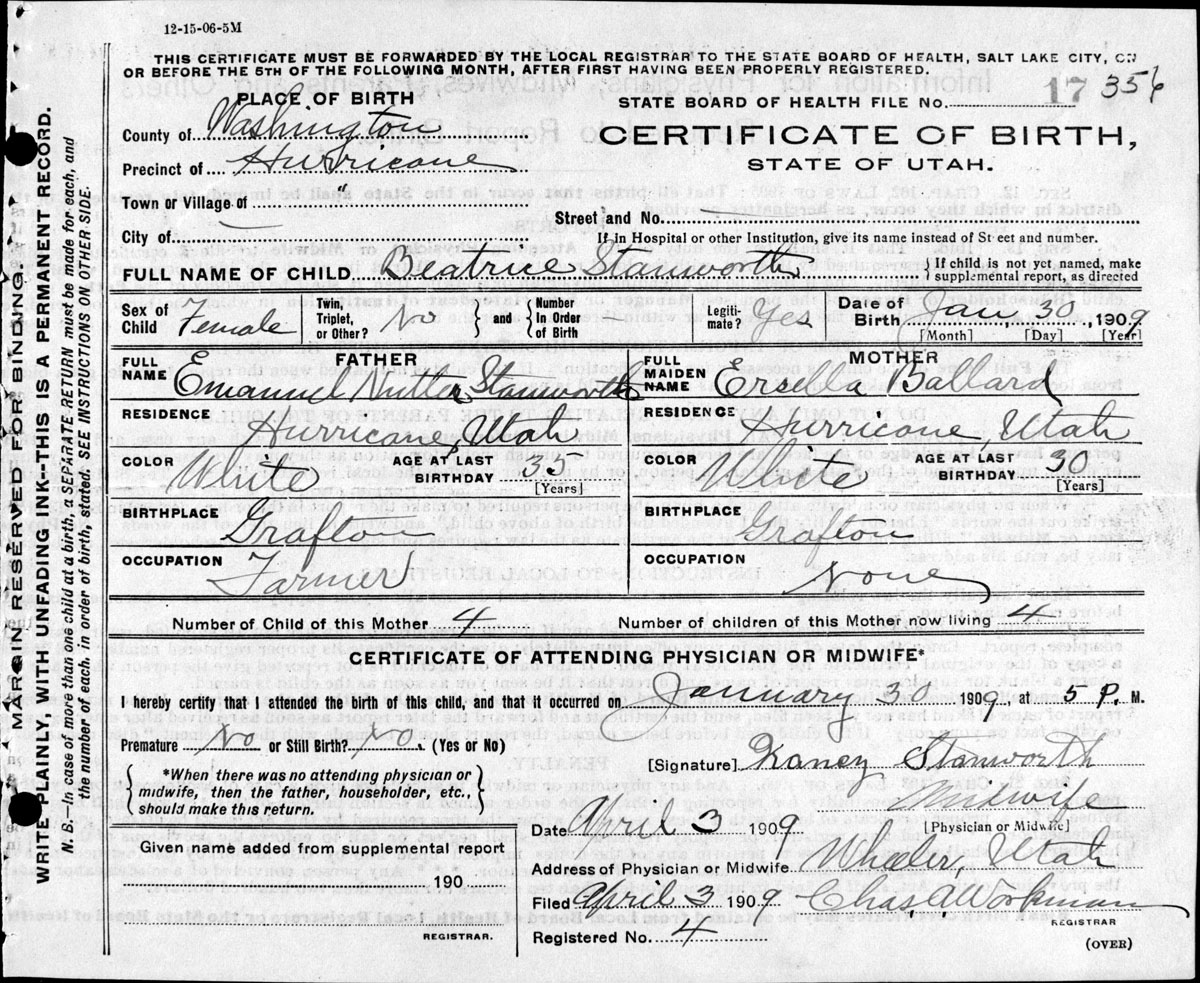 12-15-06-5M
THIS CERTIFICATE MUST BE FORWARDED BY THE LOCAL REGISTRAR TO THE STATE BOARD OF HEALTH, SALT LAKE CITY, ON
OR BEFORE THE 5TH OF THE FOLLOWING MONTH, AFTER FIRST HAVING BEEN PROPERLY REGISTERED.
PLACE OF BIRTH
STATE BOARD OF HEALTH FILE No. 17 356
County of Washington
CERTIFICATE OF BIRTH,
Precinct of Hurricane
STATE OF UTAH.
Town or Village of "
Street and No.
City of
If in Hospital or other Institution, give its name instead of Street and number.
FULL NAME OF CHILD Beatrice Stanworth { If child is not yet named, make
supplemental report, as directed
Sex of Child Female Twin, Triplet, or Other? No and { Number In Order of Birth — Legiti-mate? Yes Date of Birth Jan, 30, 1909
[Month] [Day] [Year]
FATHER
FULL NAME Emanuel Nutter Stanworth
MOTHER
FULL MAIDEN NAME Ersela Ballard
RESIDENCE Hurricane, Utah
RESIDENCE Hurricane, Utah
COLOR White AGE AT LAST BIRTHDAY 35 [Years]
COLOR White AGE AT LAST BIRTHDAY 30 [Years]
BIRTHPLACE Grafton
BIRTHPLACE Grafton
OCCUPATION Farmer
OCCUPATION None
Number of Child of this Mother 4 Number of children of this Mother now living 4
CERTIFICATE OF ATTENDING PHYSICIAN OR MIDWIFE*
I hereby certify that I attended the birth of this child, and that it occurred on January 30 1909, at 5 P. M.
Premature No or Still Birth? No. (Yes or No)
[Signature] Stanworth
{ *When there was no attending physician or
midwife, then the father, householder, etc.,
should make this return. }
Midwife
Date April 3 1909 [Physician or Midwife]
Given name added from supplemental report
Address of Physician or Midwife Wheeler, Utah
190
Filed April 3 1909 Chas A Workman
REGISTRAR
REGISTRAR.
Registered No. 4
(OVER)
MARGIN RESERVED FOR BINDING.
WRITE PLAINLY, WITH UNFADING INK—THIS IS A PERMANENT RECORD.
N. B.—In case of more than one child at a birth, a SEPARATE RETURN must be made for each, and
the number of each, in order of birth, stated. SEE INSTRUCTIONS ON OTHER SIDE.